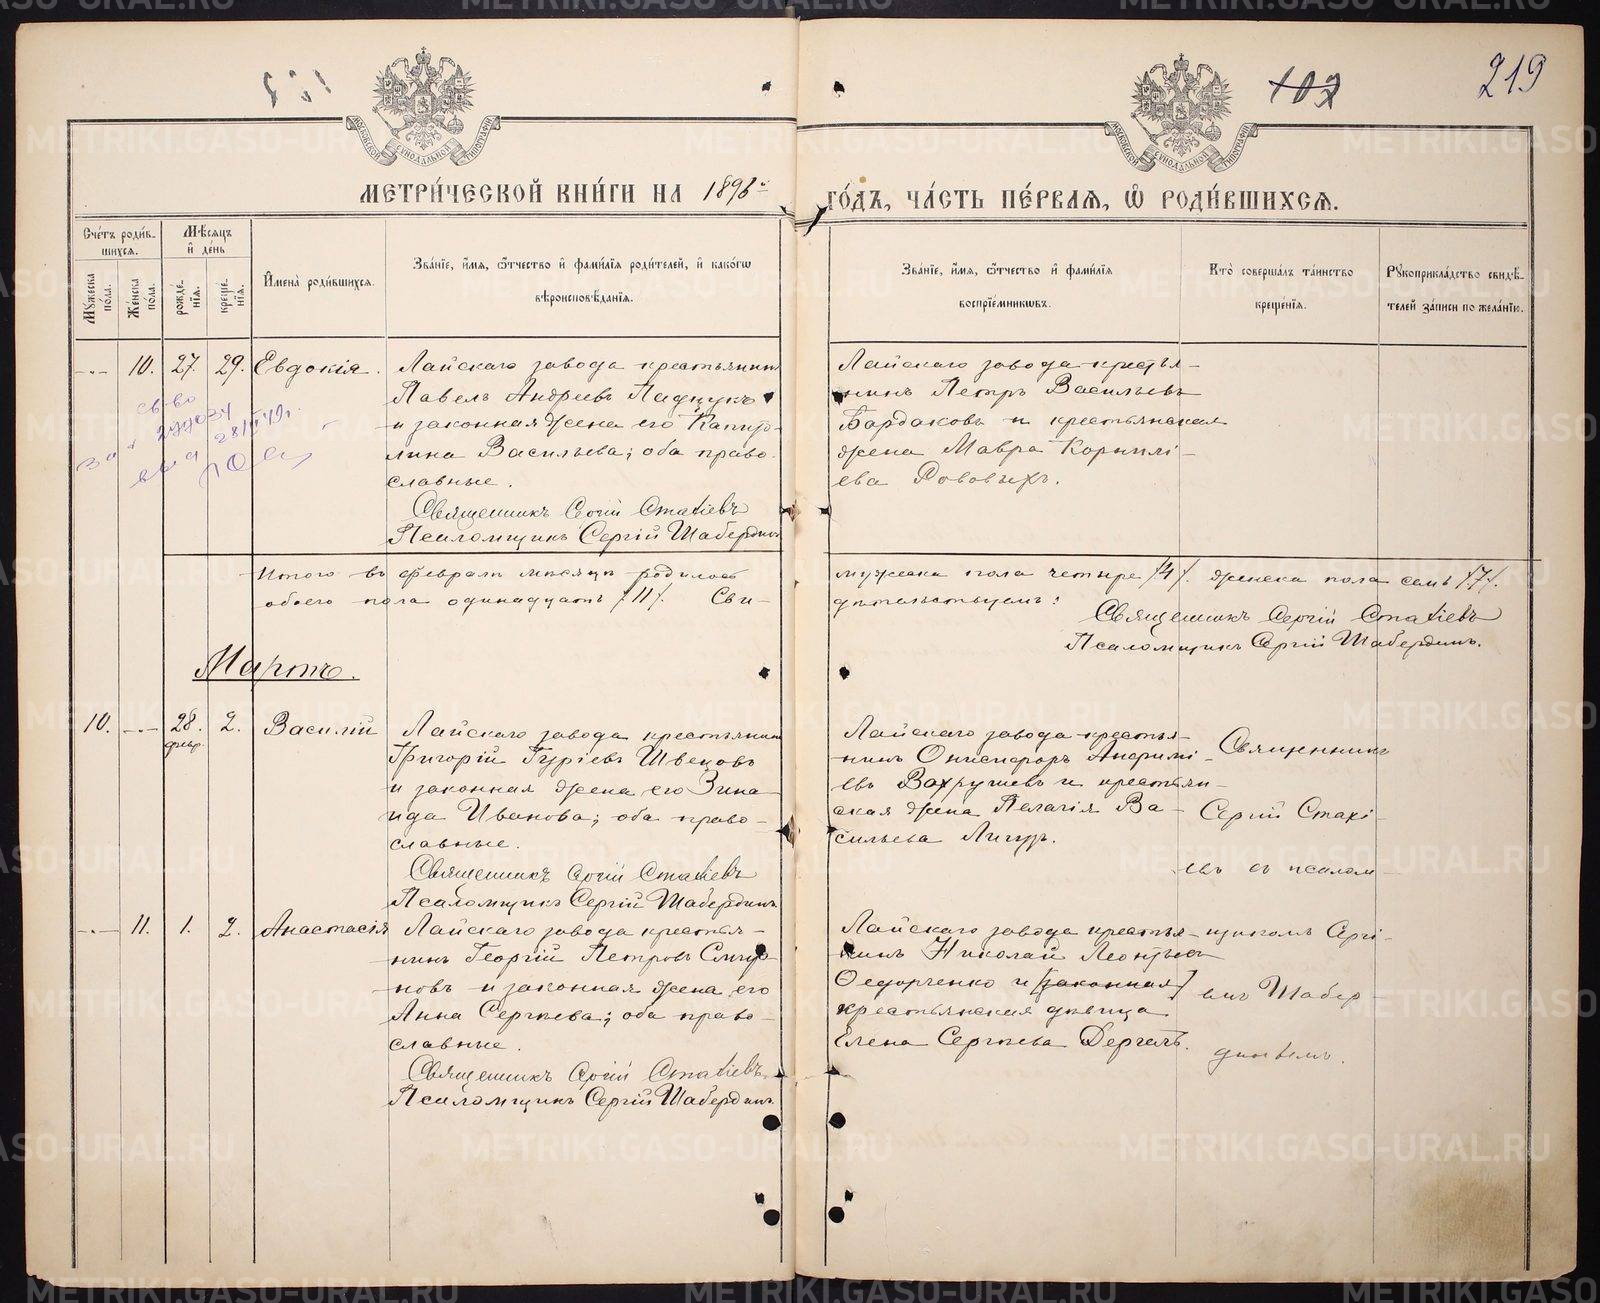 219
МЕТРИ́ЧЕСКОЙ КНИ́ГИ НА 1896й ГО́ДЪ, ЧА́СТЬ ПЕ́РВАѦ, Ѡ҆ РОДИ́ВШИХСѦ.
Сче́тъ роди́в-
шихся.
Мѣ́сяцъ
и҆ де́нь
Мꙋ́жеска
по́ла.
Же́нска
по́ла.
рожде-
нія.
креще-
нія.
И҆мена̀ роди́вшихся.
Зва́ніе, и҆́мя, ѻ҆́тчество и҆ фами́лія роди́телей, и҆ како́гѡ
вѣроисповѣ́данія.
Зва́ніе, и҆́мя, ѻ҆́тчество и҆ фами́лія
воспріе́мникѡвъ.
Кто̀ соверша́лъ та́инство
креще́нія.
Рꙋкоприкла́дство свидѣ́-
телей за́писи по жела́нію.
10. 27. 29. Евдокія.
Лайскаго завода крестьянинъ
Павелъ Андреевъ
и законная жена его Капито-
лина Васильева; оба право-
славные.
Священникъ Сергій Стахіевъ
Псаломщикъ Сергій Шабердинъ
Лайскаго завода крестья-
нинъ Петръ Васильевъ
Бардаковъ и крестьянская
жена Мавра Корнилі-
ева
Итого въ февралѣ мѣсяцѣ родилось
обоего пола одинадцать /11/. Сви-
мужеска пола четыре /4/. женска пола семь /7/.
дѣтельствуемъ:
Священникъ Сергій Стахіевъ
Псаломщикъ Сергій Шабердинъ.
Мартъ.
10. 28. февр. 2. Василій
Лайскаго завода крестьянинъ
Григорій Гуріевъ Швецовъ
и законная жена его Зина-
ида Иванова; оба право-
славные.
Священникъ Сергій Стахіевъ
Псаломщикъ Сергій Шабердинъ
Лайскаго завода крестья-
нинъ Онисифоръ
евъ Вахрушевъ и крестьян-
ская жена Пелагія Ва-
сильева
Священникъ
Сергій Стахі-
евъ съ псалом-
щикомъ Сергі-
емъ Шабер-
динымъ.
11. 1. 2. Анастасія
Лайскаго завода крестья-
нинъ Георгій Петровъ Смир-
новъ и законная жена его
Анна Сергѣева; оба право-
славные.
Священникъ Сергій Стахіевъ
Псаломщикъ Сергій Шабердинъ
Лайскаго завода крестья-
нинъ Николай Леонтьевъ
Ѳедорченко и [законная]
крестьянская дѣвица
Елена Сергѣева
METRIKI.GASO-URAL.RU